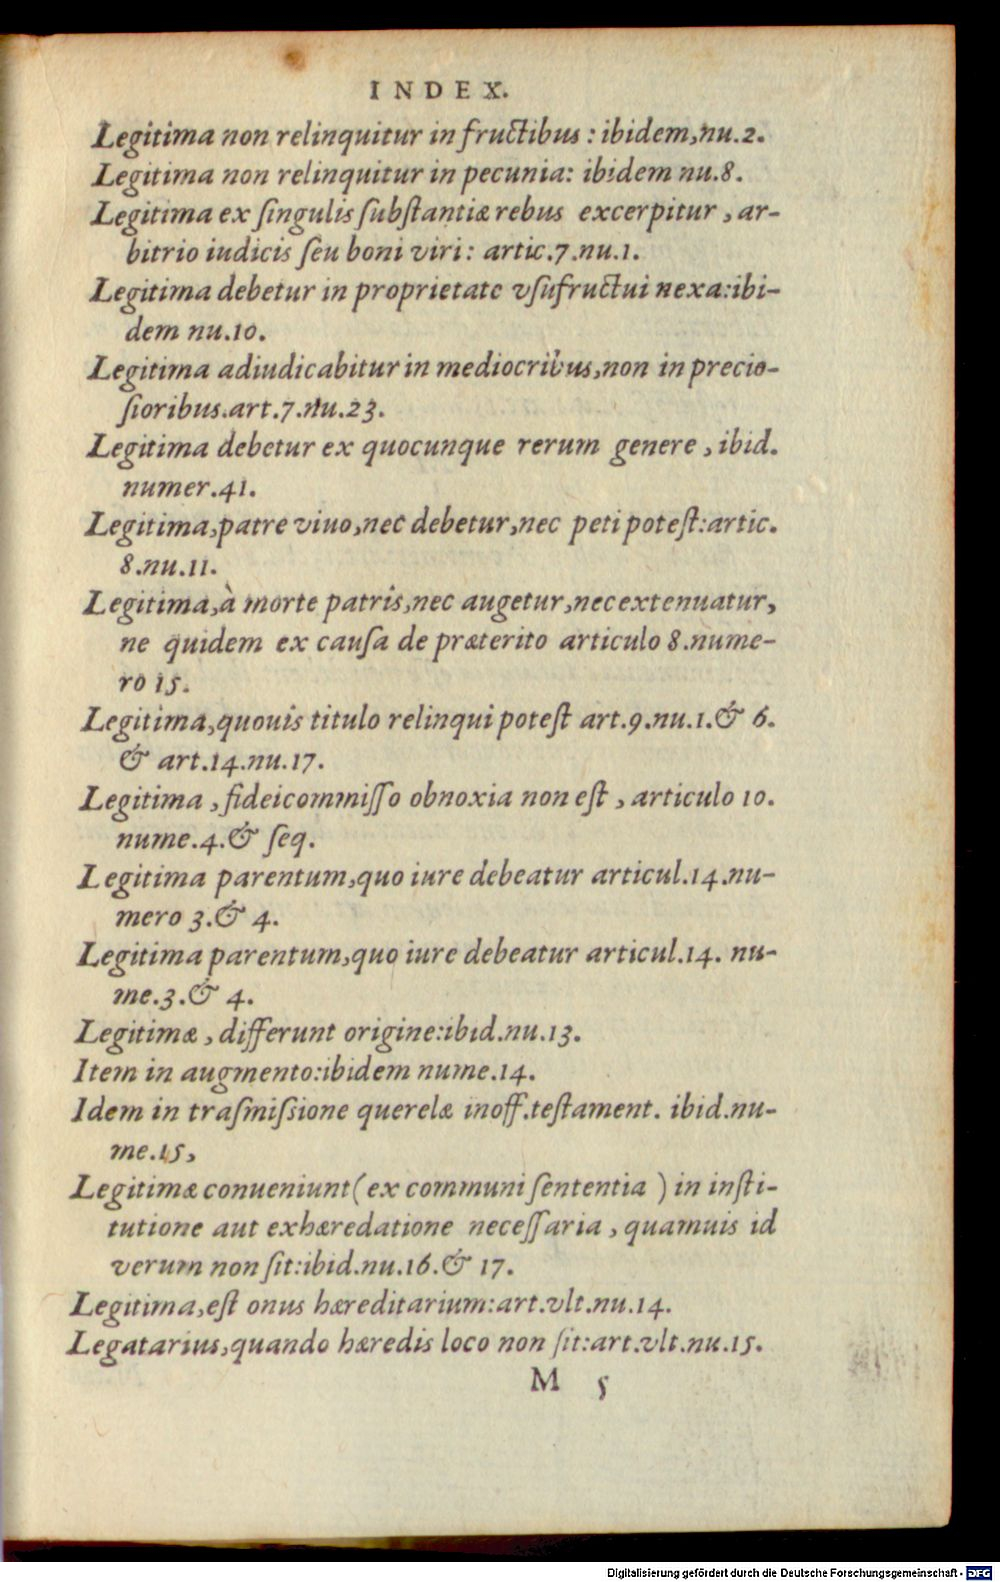 INDEX.
Legitima non relinquitur in fructibus : ibidem,nu.2.
Legitima non relinquitur in pecunia: ibidem nu.8.
Legitima ex ſingulis ſubſtantiæ rebus excerpitur , ar-
bitrio iudicis ſeu boni viri: artic.7.nu.1.
Legitima debetur in proprietate vſufructui nexa:ibi-
dem nu.10.
Legitima adiudicabitur in mediocribus,non in precio-
ſioribus.art.7.nu.23.
Legitima debetur ex quocunque rerum genere , ibid.
numer.41.
Legitima,patre viuo,nec debetur,nec peti poteſt:artic.
8.nu.11.
Legitima,à morte patris,nec augetur,nec extenuatur,
ne quidem ex cauſa de præterito articulo 8.nume-
ro 15.
Legitima,quouis titulo relinqui poteſt art.9.nu.1.& 6.
& art.14.nu.17.
Legitima , fideicommiſſo obnoxia non eſt , articulo 10.
nume.4.& ſeq.
Legitima parentum,quo iure debeatur articul.14.nu-
mero 3.& 4.
Legitima parentum,quo iure debeatur articul.14. nu-
me.3.& 4.
Legitimæ , differunt origine:ibid.nu.13.
Item in augmento:ibidem nume.14.
Idem in traſmiſsione querelæ inoff.teſtament. ibid.nu-
me.15,
Legitimæ conueniunt (ex communi ſententia ) in inſti-
tutione aut exhæredatione neceſſaria , quamuis id
verum non ſit:ibid.nu.16.& 17.
Legitima,eſt onus hæreditarium:art.vlt.nu.14.
Legatarius,quando hæredis loco non ſit:art.vlt.nu.15.
M 5
Digitalisierung gefördert durch die Deutsche Forschungsgemeinschaft - DFG